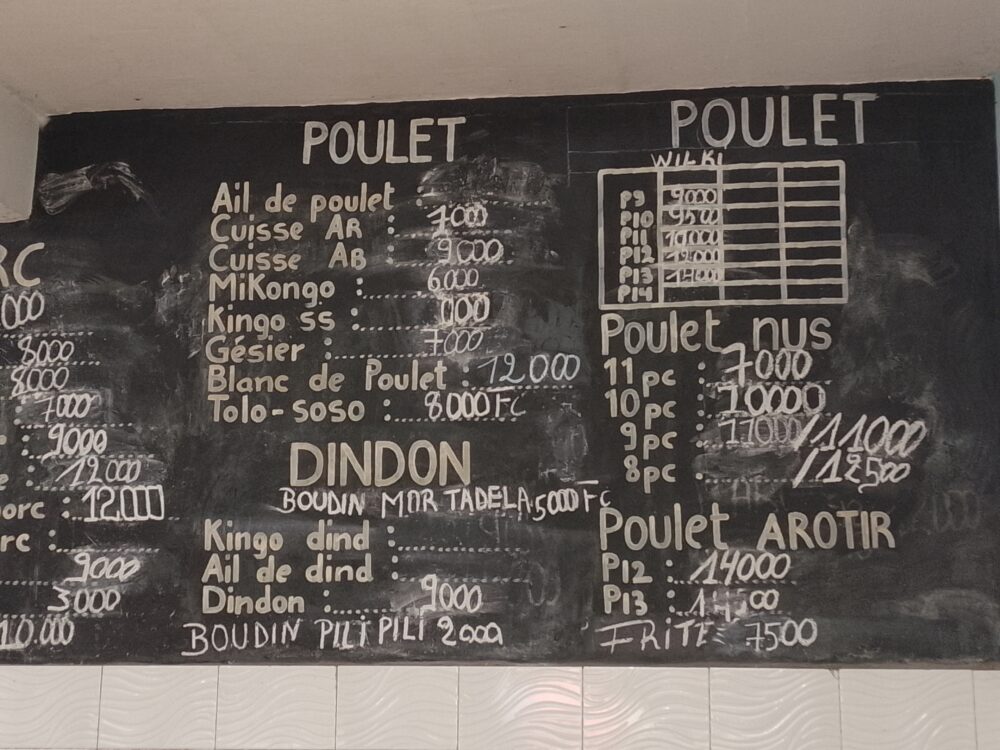 RC
000
8000
8000
7000
: 9000
e : 12000
orc : 12.000
rc :
9000
3000
10.000
POULET
Ail de poulet :
Cuisse AR : 7000
Cuisse AB : 9000
Mikongo : 6000
Kingo ss : 000
Gésier : 7000
Blanc de Poulet : 12000
Tolo-soso : 8000FC
DINDON
BOUDIN MORTADELA 5000FC
Kingo dind :
Ail de dind :
Dindon : 9000
BOUDIN PILI PILI 2000
POULET
WILKI
P9 9000
P10 9500
P11
P12
P13
P14
Poulet nus
11pc : 7000
10pc : 10000
9pc : /11000
8pc : /12500
Poulet AROTIR
P12 : 14000
P13 :
FRITE 7500